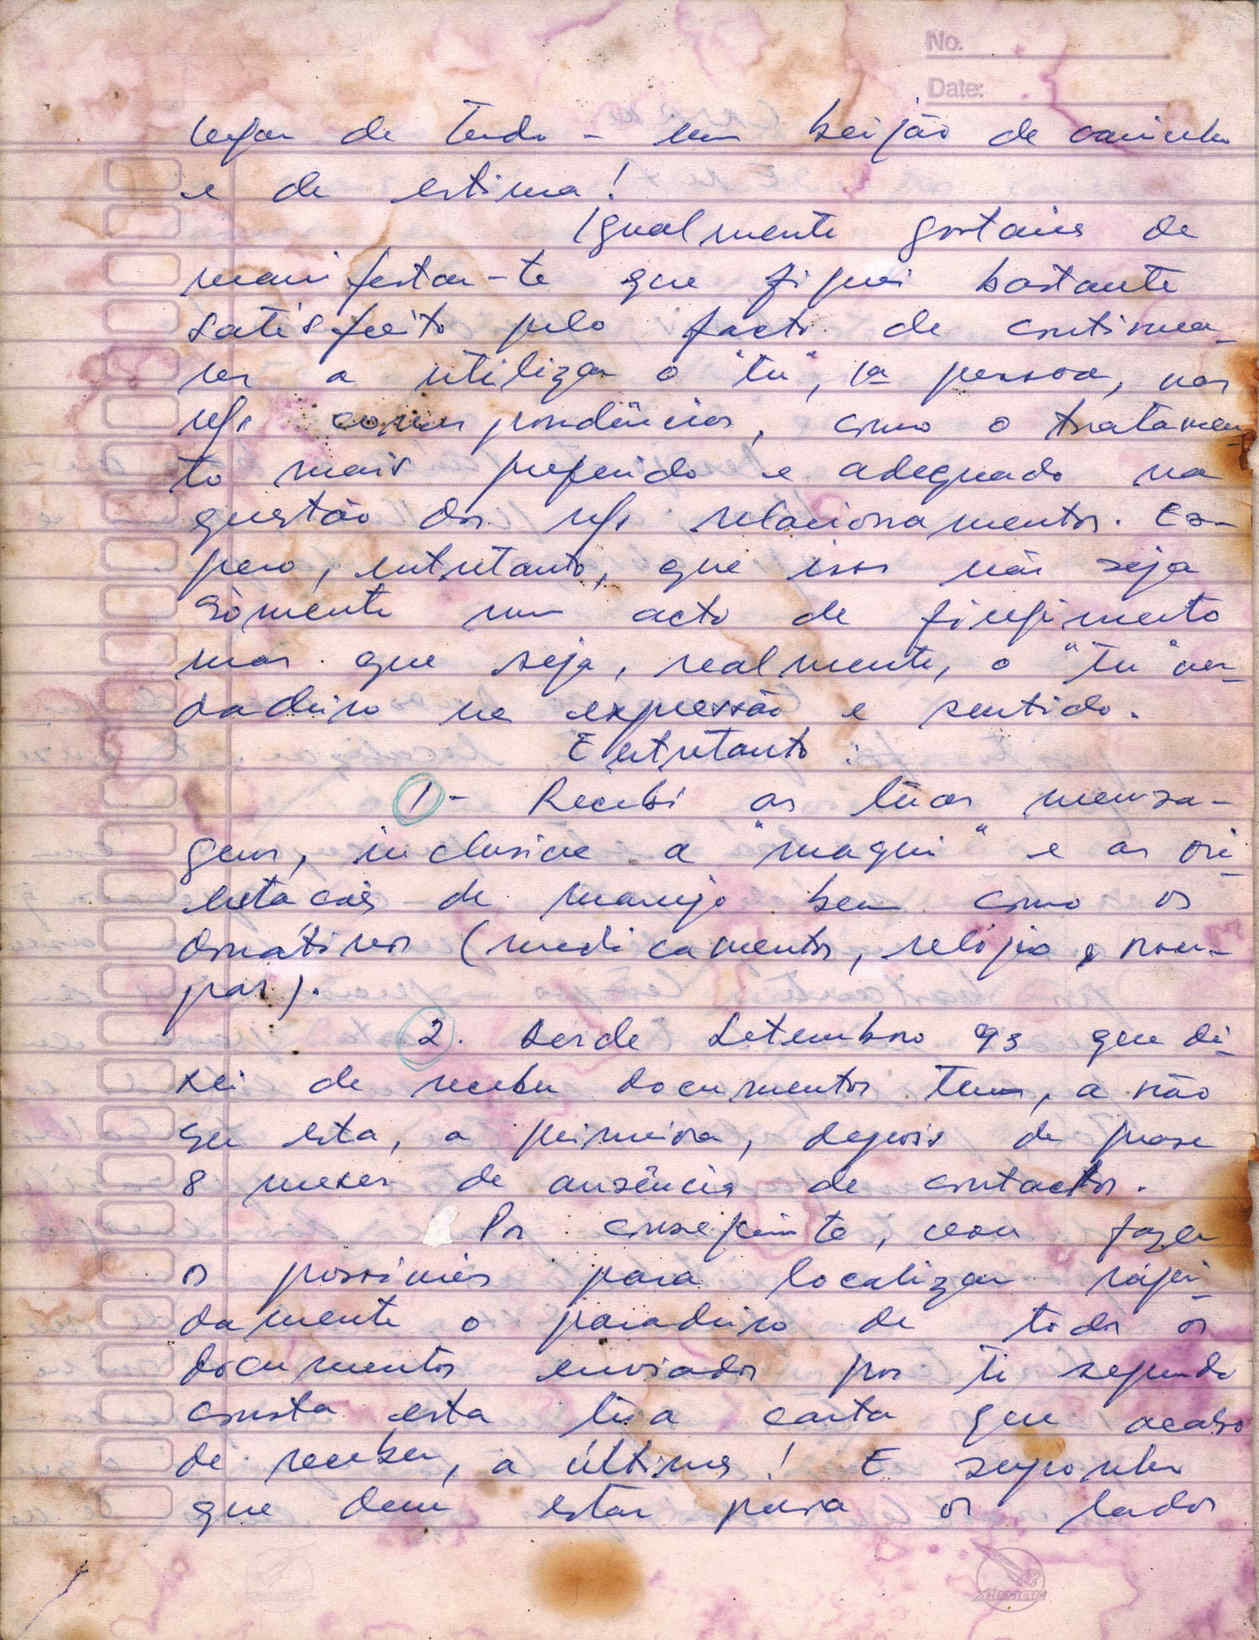 No.
Date:
lugar de tudo - um beijão de carinho
e de estima!
Igualmente gostaria de
manifestar-te que fiquei bastante
satisfeito pelo facto de continua-
res a utilizar o "tu", 1ª pessoa, nas
n/s correspondências, como o tratamen
to mais preferido e adequado na
questão dos n/s relacionamentos. Es-
pero, entretanto, que isso não seja
sòmente um acto de fingimento
mas que seja, realmente, o "tu" ver-
dadeiro na expressão e sentido.
Entretanto:
1- Recebi as tuas mensa-
gens, inclusive a "maqui" e as ori-
entações de manejo bem como os
donativos (medicamentos, relógio e rou-
pas).
2. Desde Setembro 93 que dei-
xei de receber documentos teus, a não
ser esta, a primeira, depois de quase
8 meses de ausência de contactos.
Por conseguinte, vou fazer
os possiveis para localizar rápi-
damente o paradeiro de todos os
documentos enviados por ti segundo
consta esta tua carta que acabo
de receber, a última! E suponho
que dem estar para os lados